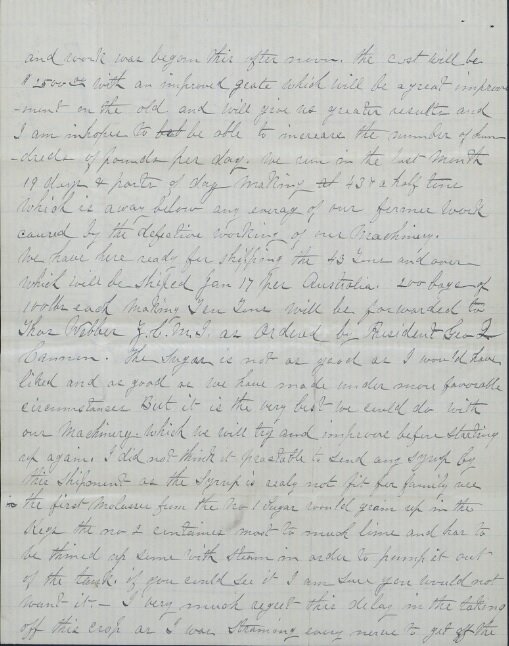 and work was begorn this after noon. the cost will be
$2500 00 with an improved grate which will be a great improve
-ment on the old and will give us greater results and
I am inhopes to but be able to increase the number of hun
-dreds of pounds per day. We run in the last Month
19 days & parts of day Making at 43 & a half tons
which is away below any everag of our former work
caused by the defective working of our Machinery.
We have here ready for shipping the 43 Tons and over
which will be shiped Jan 17 Per Australia. 200 bags of
100 lbs each Making Ten Tons will be forwarded to
Thos Webber Z.C.M.I. as ordered by President Geo Q
Cannon. The Sugar is not as good as I would have
liked and as good as we have made under more favorable
circumstances But it is the very best we could do with
our Machinery. which we will try and improve before starting
up again. I did not think it profitable to send any Syrup by
this shipment as the Syrup is realy not fit for family use
the first Molasses from the No 1 Sugar would gram up in the
Kegs the no 2 containes most to much lime and has to
be thined up some with steam in order to pump it out
of the tank. if you could see it I am sure you would not
want it. - I very much regret this delay in the taking
off this crop as I was straming every nerve to get off the